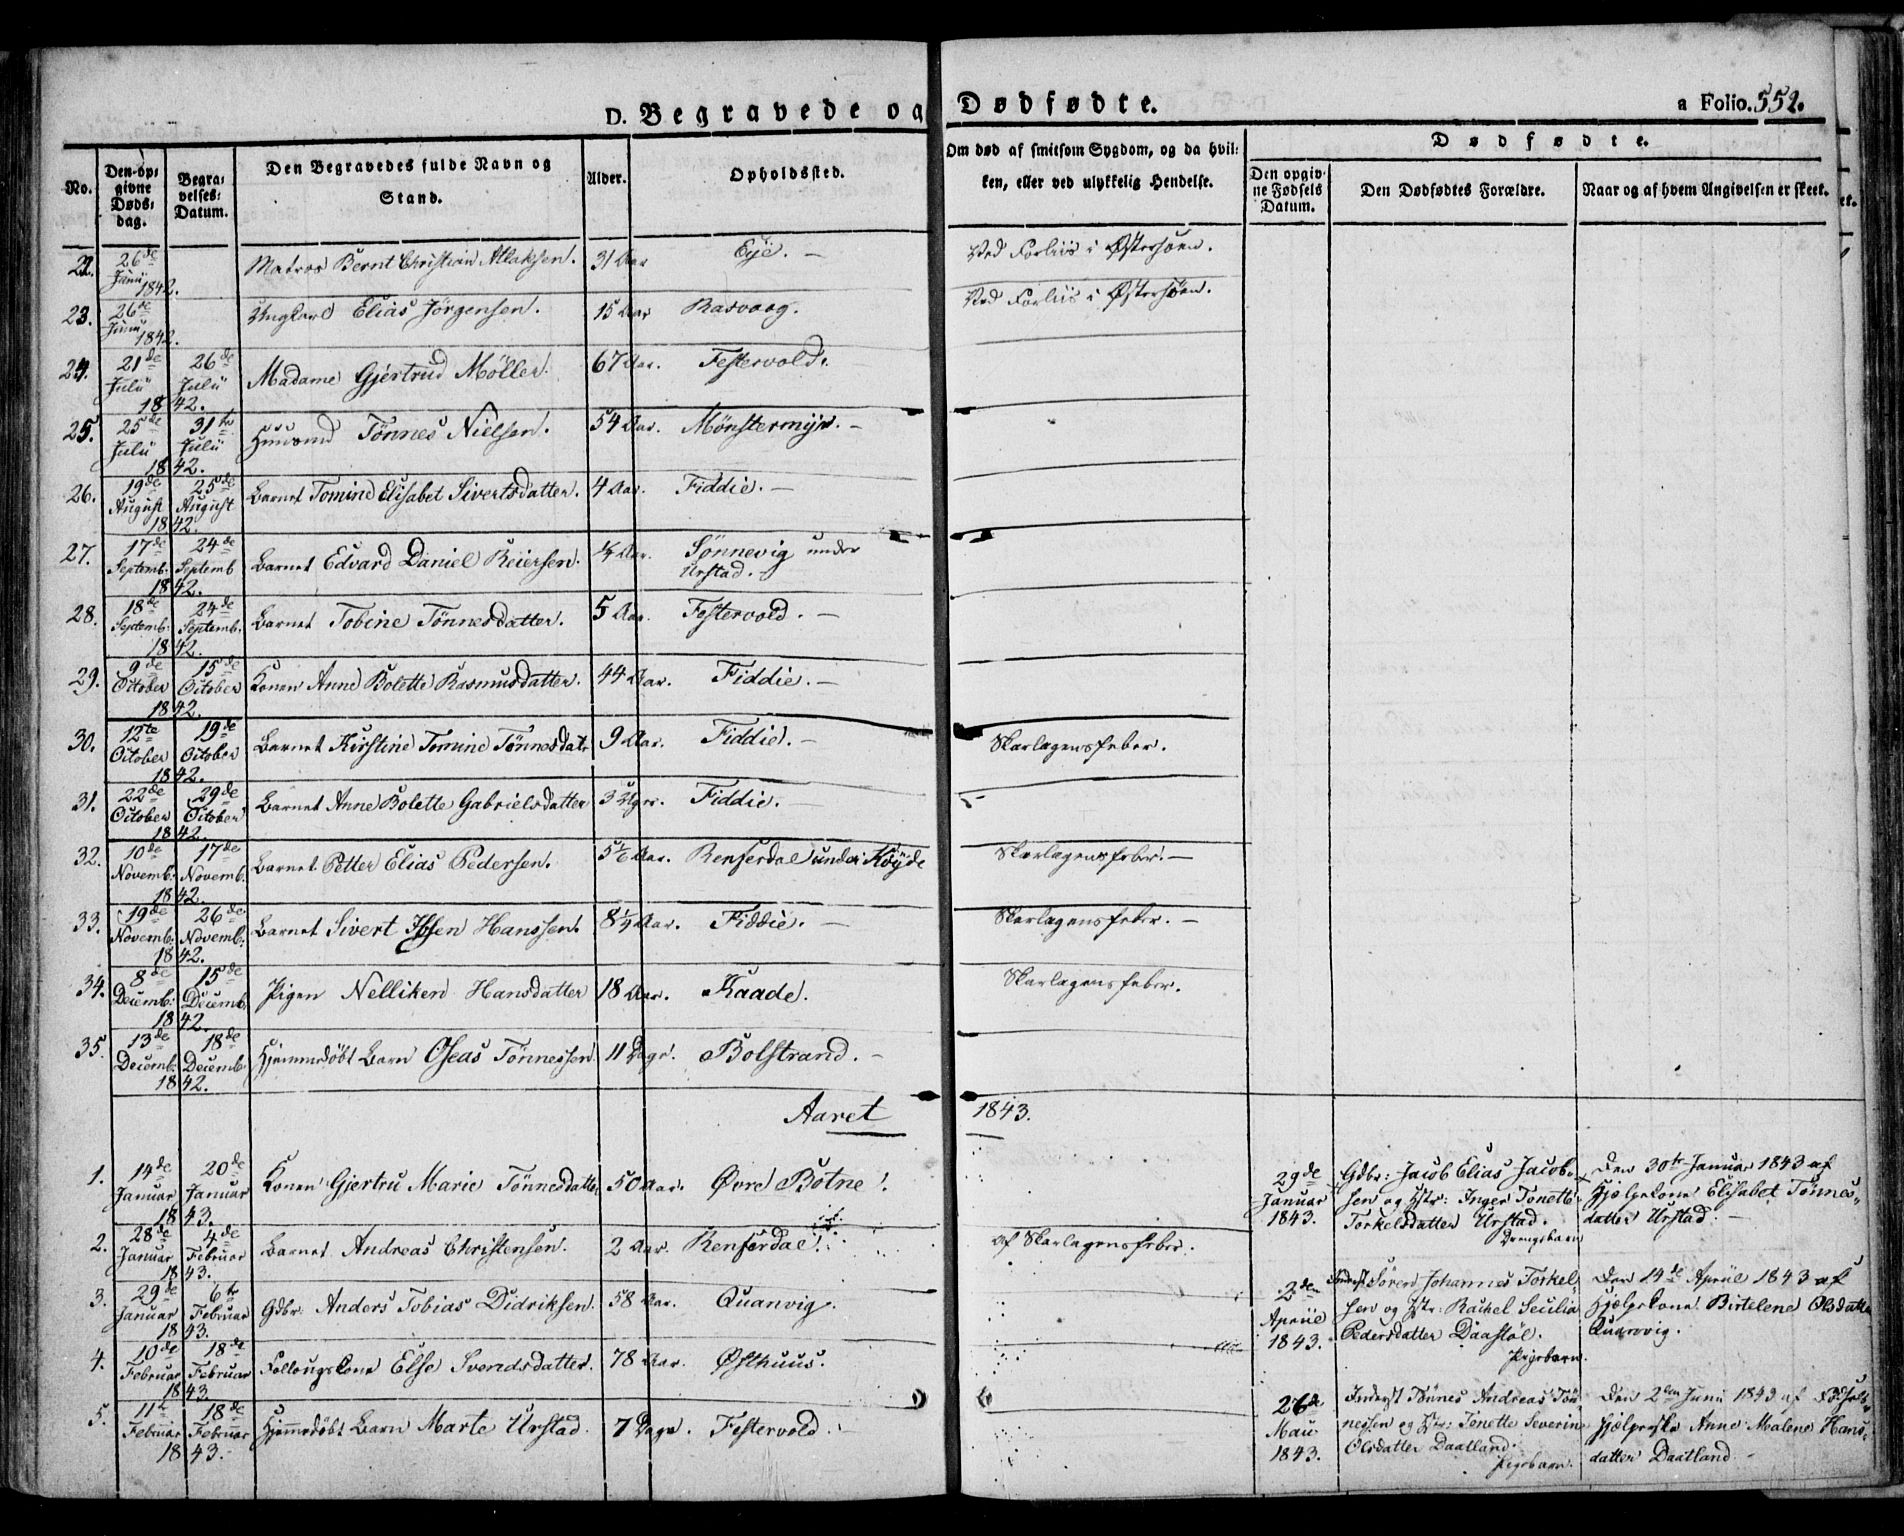 D. Begravede og Dødfødte.
a Folio. 552.
No.
Den opgivne Døds-dag.
Begravelses-Datum.
Den Begravedes fulde Navn og Stand.
Alder.
Opholdssted.
Om død af smitsom Sygdom, og da hvilken, eller ved ulykkelig Hendelse.
Dødfødte.
Den opgivne Fødsels Datum.
Den Dødfødtes Forældre.
Naar og af hvem Angivelsen er skeet.
22. 26de Junii 1842. Matros Bernt Christian Allaksen. 31 Aar Eye. — Ved Forliis i Østersøen.
23. 26de Junii 1842. Ungkarl Elias Jörgensen. 15 Aar Rasvaag. Ved Forliis i Østersøen.
24. 21de Julii 26de Julii 1842. Madame Gjertrud Möller. 67 Aar. Festervold.
25. 25de Julii 31te Julii 1842. Huusmd Tönnes Nielsen. 54 Aar. Mönstermyr. —
26. 19de August 25de August 1842. Barnet Tomine Elisabet Sivertsdatter. 4 Aar. Fiddie. —
27. 17de Septemb. 24de Septemb 1842. Barnet Edvard Daniel Reiersen. ¼ Aar. Sönnevig under Urstad. —
28. 18de Septemb: 24de Septemb. 1842. Barnet Tobine Tönnesdatter. 5 Aar. Festervold. —
29. 9de October 15de October 1842. Konen Anne Bolette Rasmusdatter. 44 Aar. Fiddie. —
30. 12te October 19de October 1842. Barnet Kirstine Tomine Tönnesdatr 9 Aar. Fiddie. — Skarlagensfeber.
31. 22de October 29de October 1842. Barnet Anne Bolette Gabrielsdatter 3 Ugr. Fiddie.
32. 10de Novemb: 17de Novemb. 1842. Barnet Petter Elias Pedersen. 5 1/6 Aar. Renserdal under Köyde Skarlagensfeber. —
33. 19de Novemb. 26de Novemb. 1842. Barnet Sivert Ibsen Hanssen. 8½ Aar. Fiddie. — Skarlagensfeber. —
34. 8de Decemb: 15de Decemb. 1842. Pigen Nelliken Hansdatter 18 Aar. Kaade. Skarlagensfeber.
35. 13de Decemb. 18de Decemb. 1842. Hjemmedöbt Barn Oseas Tönnessen 11 Dage. Bolstrand. —
Aaret 1843.
1. 14de Januar 20de Januar 1843. Konen Gjertru Marie Tönnesdatter 50 Aar. Øvre Botne.
2. 28de Januar 4de Februar 1843. Barnet Andreas Christensen. 2 Aar. Renserdal. af Skarlagensfeber.
3. 29de Januar 6te Februar 1843. Gdbr: Anders Tobias Didriksen. 58 Aar. Quanvig.
4. 10de Februar 18de Februar 1843. Follougskone Else Svendsdatter. 78 Aar. Østhuus.
5. 11te Februar 18de Februar 1843. Hjemmedöbt Barn Marte Urstad. 7 Dage. Festervold.
29de Januar 1843. Gdbr: Jacob Elias Jacobsen og Hstr: Inger Tonette Torkelsdatter Urstad. Drengebarn
Den 30te Januar 1843 af Hjelpekone Elisabet Tönnesdatter Urstad. —
2den Apriil 1843. Inderst Sören Johannes Torkelsen og Hstr: Rachel Secilia Pedersdatter Daastöl. Pigebarn.
Den 14de Apriil 1843 af Hjelpekone Birtelene Olsdatter Quanvig.
26de Mai 1843. Inderst Tönnes Andreas Tönnessen og Hstr: Tonette Severine Olsdatter Daatland. Pigebarn.
Den 2den Junii 1843 af Hjelperske Anne Malene Hansdatter Daatland. —